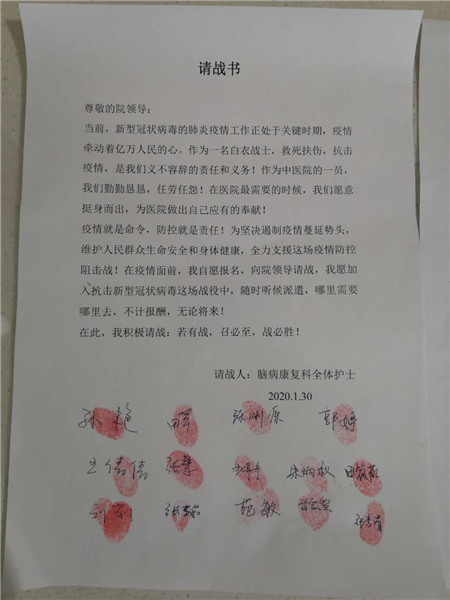 请战书
尊敬的院领导：
当前，新型冠状病毒的肺炎疫情工作正处于关键时期，疫情
牵动着亿万人民的心。作为一名白衣战士，救死扶伤，抗击
疫情，是我们义不容辞的责任和义务！作为中医院的一员，
我们勤勤恳恳，任劳任怨！在医院最需要的时候，我们愿意
挺身而出，为医院做出自己应有的奉献！
疫情就是命令，防控就是责任！为坚决遏制疫情蔓延势头，
维护人民群众生命安全和身体健康，全力支援这场疫情防控
阻击战！在疫情面前，我自愿报名，向院领导请战，我愿加
入抗击新型冠状病毒这场战役中，随时听候派遣，哪里需要
哪里去，不计报酬，无论将来！
在此，我积极请战：若有战，召必至，战必胜！
请战人：脑病康复科全体护士
2020.1.30
张艳 田军 张渊源 郭婷
王倩倩 张慧
范敏